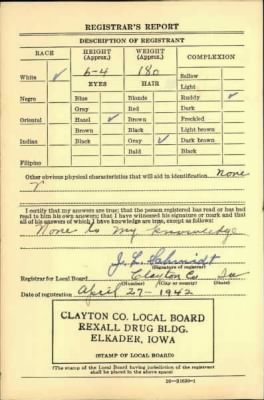 REGISTRAR'S REPORT
DESCRIPTION OF REGISTRANT
RACE HEIGHT (Approx.) WEIGHT (Approx.) COMPLEXION
White ✓ 6-4 180 Sallow
EYES HAIR Light
Negro Blue Blonde Ruddy ✓
Gray Red Dark
Oriental Hazel ✓ Brown Freckled
Brown Black Light brown
Indian Black Gray ✓ Dark brown
Bald Black
Filipino
Other obvious physical characteristics that will aid in identification None
I certify that my answers are true; that the person registered has read or has had
read to him his own answers; that I have witnessed his signature or mark and that
all of his answers of which I have knowledge are true, except as follows:
None to my knowledge
J. L. Schmidt
(Signature of registrar)
Registrar for Local Board Clayton Co. Ia
(Number) (City or county) (State)
Date of registration April 27 - 1942
CLAYTON CO. LOCAL BOARD
REXALL DRUG BLDG.
ELKADER, IOWA
(STAMP OF LOCAL BOARD)
(The stamp of the Local Board having jurisdiction of the registrant
shall be placed in the above space)
16-21630-1